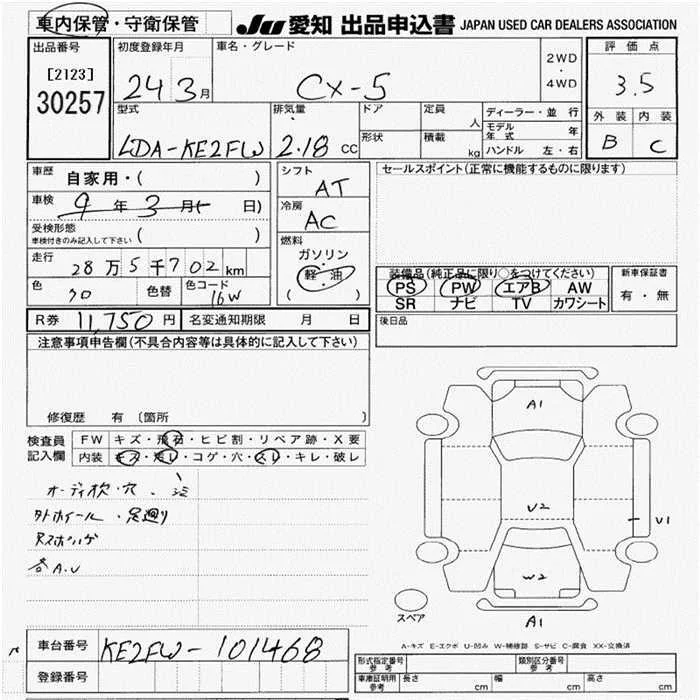 車内保管・守衛保管
JU 愛知 出品申込書 JAPAN USED CAR DEALERS ASSOCIATION
出品番号 初度登録年月 車名・グレード 評価点
[2123] 24 3月 CX-5 2WD・4WD 3.5
30257 外装 内装
型式 排気量 ドア 定員 人 ディーラー・並行
モデル年式 年
LDA-KE2FW 2.18 CC 形状 積載 kg ハンドル 左・右 B C
車歴 自家用・( ) シフト AT セールスポイント(正常に機能するものに限ります)
車検 9年3月( 日) 冷房 AC
受検形態
車検付きのみ記入して下さい ( ) 燃料
ガソリン
走行 28万5千702km 軽・油 装備品(純正品に限り○をつけてください) 新車保証書
PS PW エアB AW 有・無
色 色替 色コード 16W ( ) SR ナビ TV カワシート
R券 11,750円 名変通知期限 月 日 後日品
注意事項申告欄(不具合内容等は具体的に記入して下さい)
修復歴 有 〔箇所 〕
検査員 FW キズ・飛石・ヒビ割・リペア跡・X要
記入欄 内装 キズ・汚レ・コゲ・穴・スレ・キレ・破レ
A1
U2
U1
W2
A1
スペア
各A.U
A-キズ E-エクボ U-凹み W-補修跡 S-サビ C-腐食 XX-交換済
車台番号 KE2FW-101468
登録番号
形式指定番号 参考 類別区分番号 参考
車庫証明用 参考 長さ cm 幅 cm 高さ cm